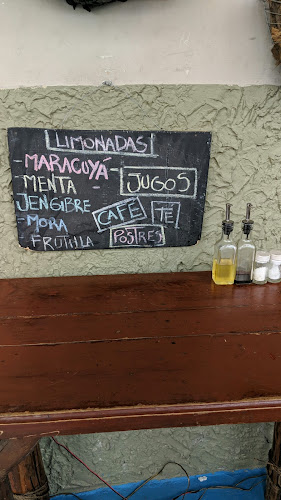 LIMONADAS
- MARACUYÁ -
- MENTA
JENGIBRE
- MORA
FRUTULA
JUGOS
CAFE
TE
POSTRES